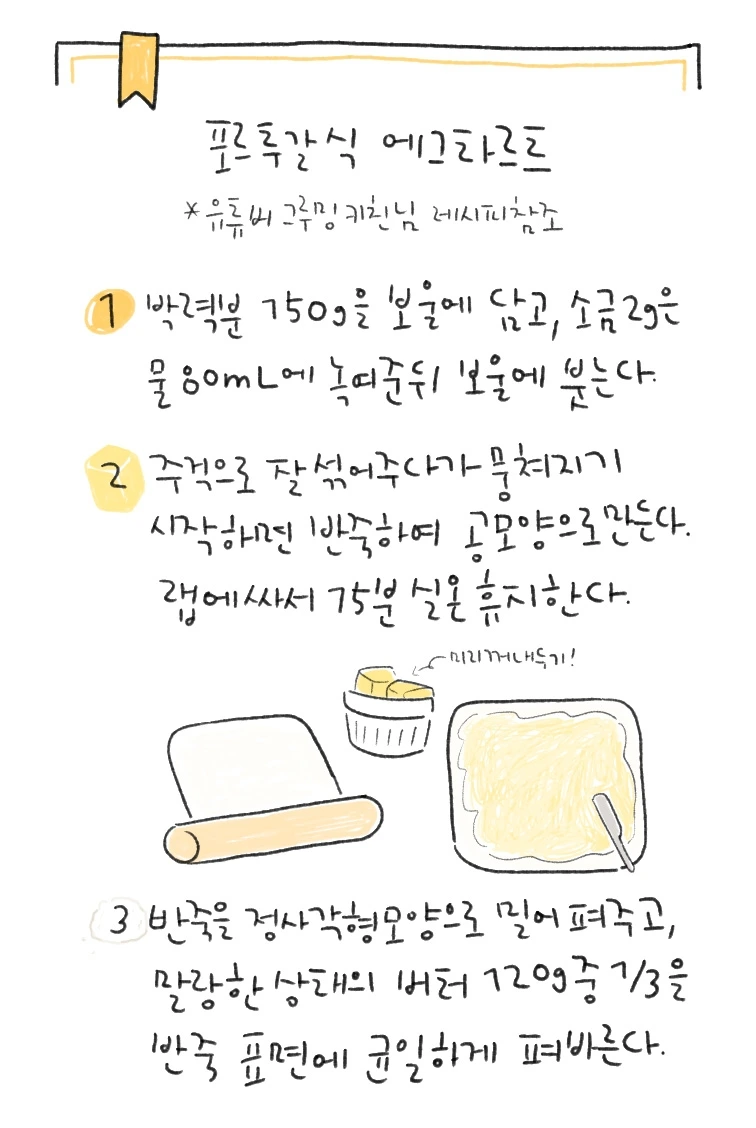 포르투갈식 에그타르트
*유튜버 그루밍키친님 레시피참조
1 박력분 150g을 보울에 담고, 소금2g은
물80mL에 녹여준뒤 보울에 붓는다.
2 주걱으로 잘섞어주다가 뭉쳐지기
시작하면 반죽하여 공모양으로만든다.
랩에싸서 15분 실온 휴지한다.
미리꺼내두기!
3 반죽을 정사각형모양으로 밀어 펴주고,
말랑한 상태의 버터 120g중 1/3을
반죽 표면에 균일하게 펴바른다.